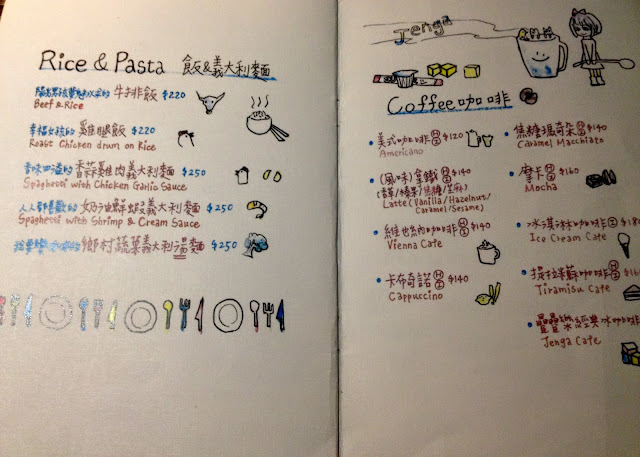 Rice & Pasta 飯&義大利麵
牛排飯 $220
Beef & Rice
幸福女孩的 雞腿飯 $220
Roast Chicken drum on Rice
香味四溢的 香蒜雞肉義大利麵 $250
Spaghetti with Chicken Garlic Sauce
人人都喜歡的 奶油鮮蝦義大利麵 $250
Spaghetti with Shrimp & Cream Sauce
鄉村蔬菜義大利湯麵 $250
Jenga
Coffee 咖啡
美式咖啡 $120
Americano
(風味)拿鐵 $140
(香草/榛果/焦糖/芝麻)
Latte (Vanilla/Hazelnut/
Caramel/Sesame)
維也納咖啡 $140
Vienna Cafe
卡布奇諾 $140
Cappuccino
焦糖瑪奇朵 $140
Caramel Macchiato
摩卡 $160
Mocha
冰淇淋咖啡 $180
Ice Cream Cafe
提拉米蘇咖啡
Tiramisu Cafe
疊疊樂經典冰咖啡
Jenga Cafe